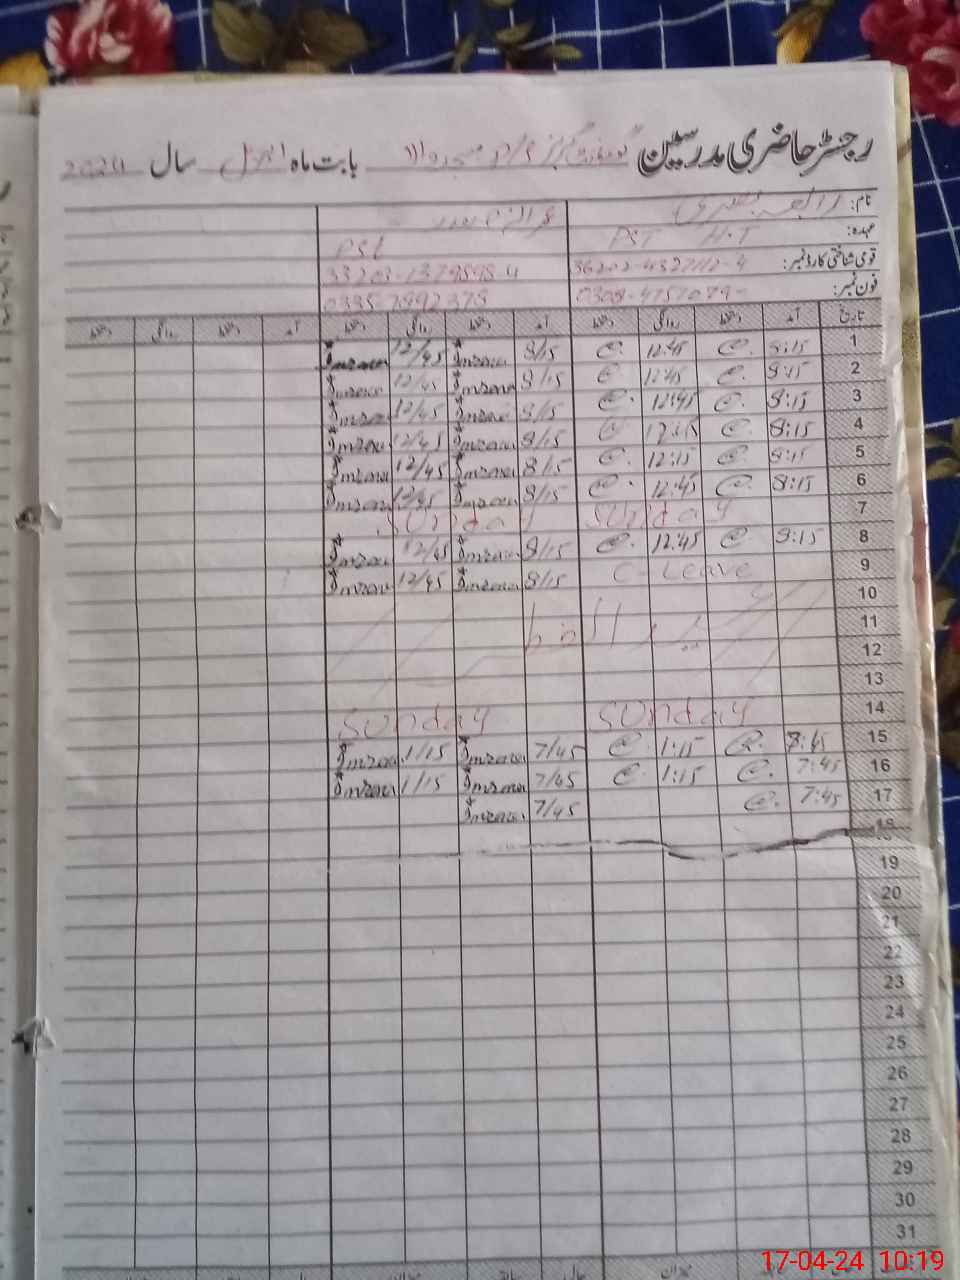 رجسٹر حاضری مدرسین بابت ماہ اپریل سال 2024
نام:
عہدہ: PST H.T PST
قومی شناختی کارڈ نمبر: 36202-4327112-4
فون نمبر:
تاریخ آمد دستخط روانگی دستخط آمد دستخط روانگی دستخط آمد دستخط روانگی دستخط
1 8:15 @. 12:45 @. 8/15 Imran 12/45 Imran
2 8:15 @. 12:45 @ 8/15 Imran 12/45 Imran
3 8:15 @. 12:45 @. 8/15 Imran 12/45 Imran
4 8:15 @. @ 8/15 Imran 12/45 Imran
5 8:15 @. 12:15 @. 8/15 Imran 12/45 Imran
6 8:15 @. 12:45 @. 8/15 Imran 12/45 Imran
7 Sunday Sunday
8 8:15 @ 12:45 @. 8/15 Imran 12/45 Imran
9 C-Leave 8/15 Imran 12/45 Imran
10
11 عید الفطر
12
13
14 Sunday Sunday
15 @. 1:15 @ 7/45 Imran 1/15 Imran
16 7:45 @. 1:15 @. 7/45 Imran 1/15 Imran
17 7:45 @. 7/45 Imran
18
19
20
21
22
23
24
25
26
27
28
29
30
31
17-04-24 10:19